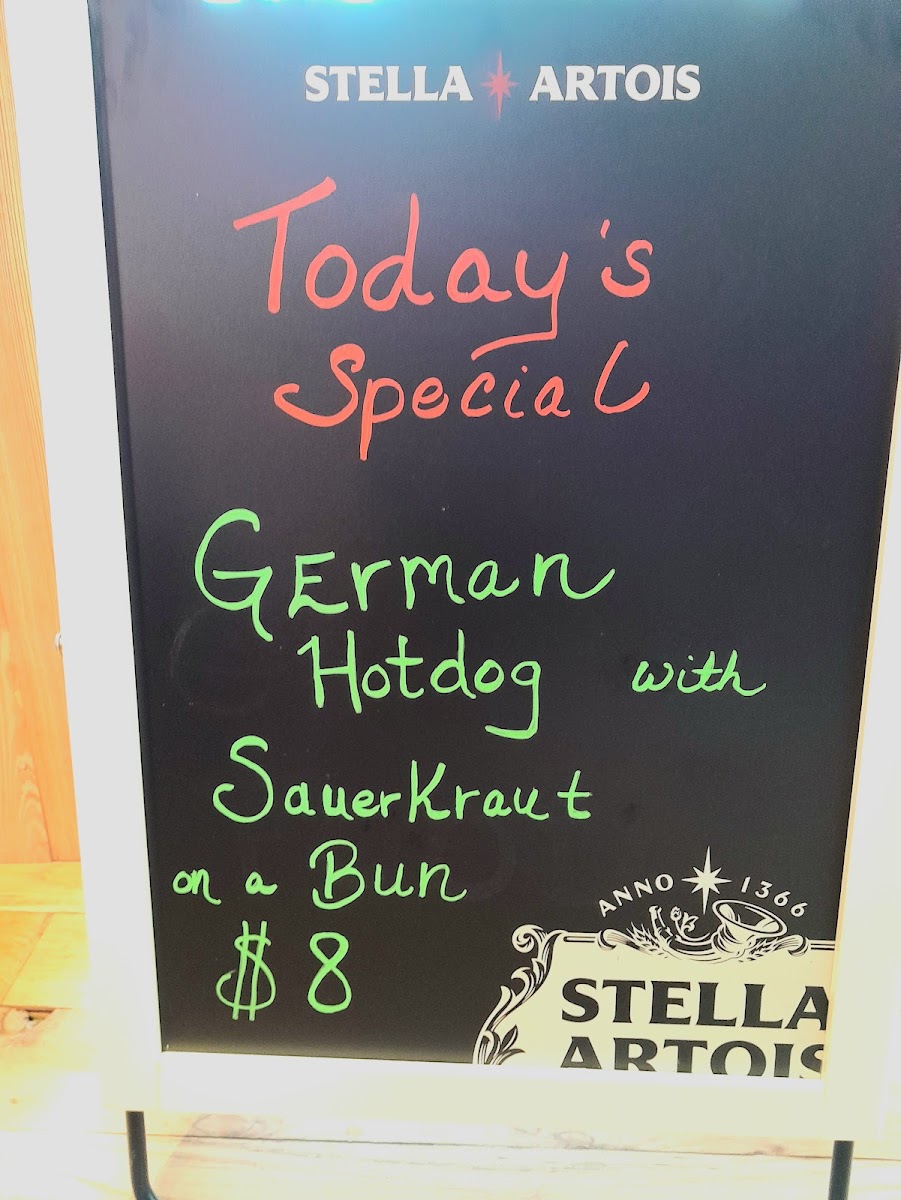 STELLA ARTOIS
Today's
Special
GErman
Hotdog with
SauerKraut
on a Bun
$8
ANNO 1366
STELLA
ARTOIS